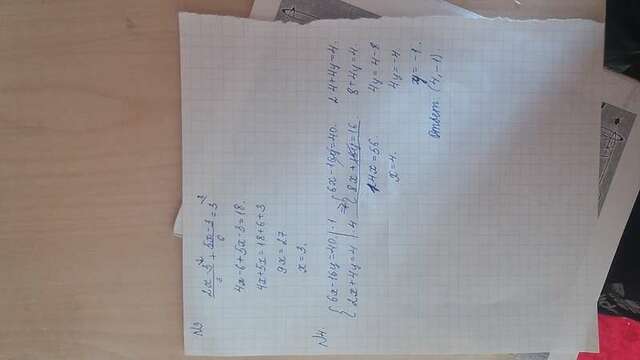 №3
2x-3 + 5x-3 = 3
3 6
4x-6+5x-3=18.
4x+5x=18+6+3
9x=27
x=3.
№4
{6x-16y=40 |·1
{2x+4y=4 |·4
=> {6x-16y=40
{8x+16y=16
14x=56
x=4.
2·4+4y=4.
8+4y=4.
4y=4-8
4y=-4
y=-1.
Ответ: (4,-1)